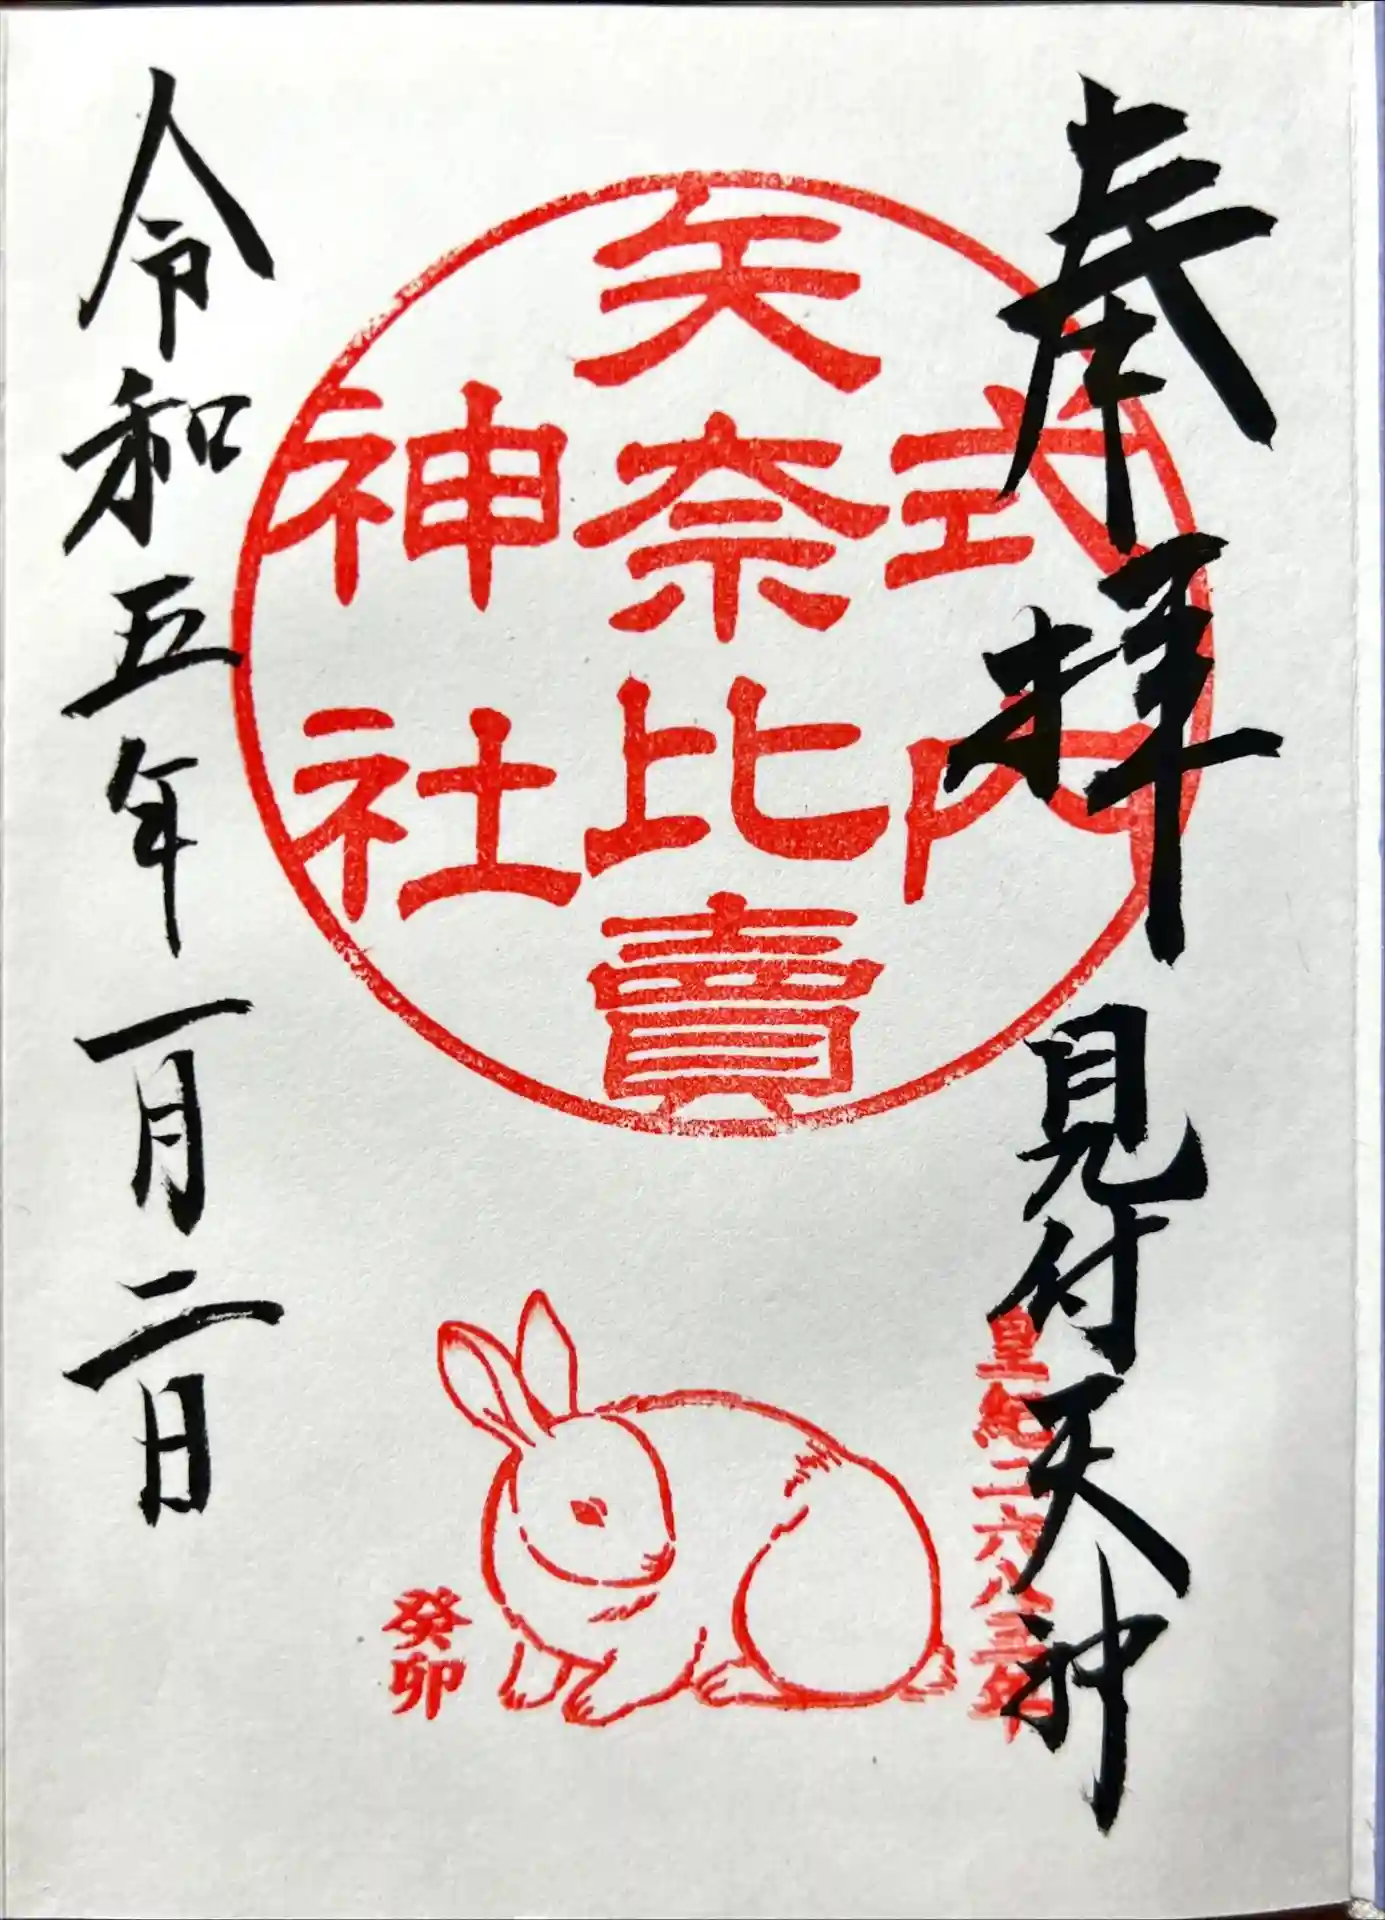 奉拝
見付天神
皇紀二六八三年
式内
矢奈比賣
神社
癸卯
令和五年一月二日